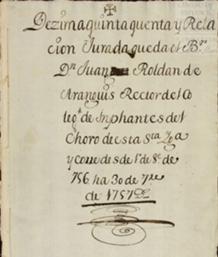 Dezimaquinta quenta y Rela
cion Jurada queda el Br.
Dn Juan Roldan de
Aranguis Rector del Co
legº de Inphantes del
Choro de esta Sta Yga
y corre desde 1º de 8e de
756 ha 30 de 7re
de 1757